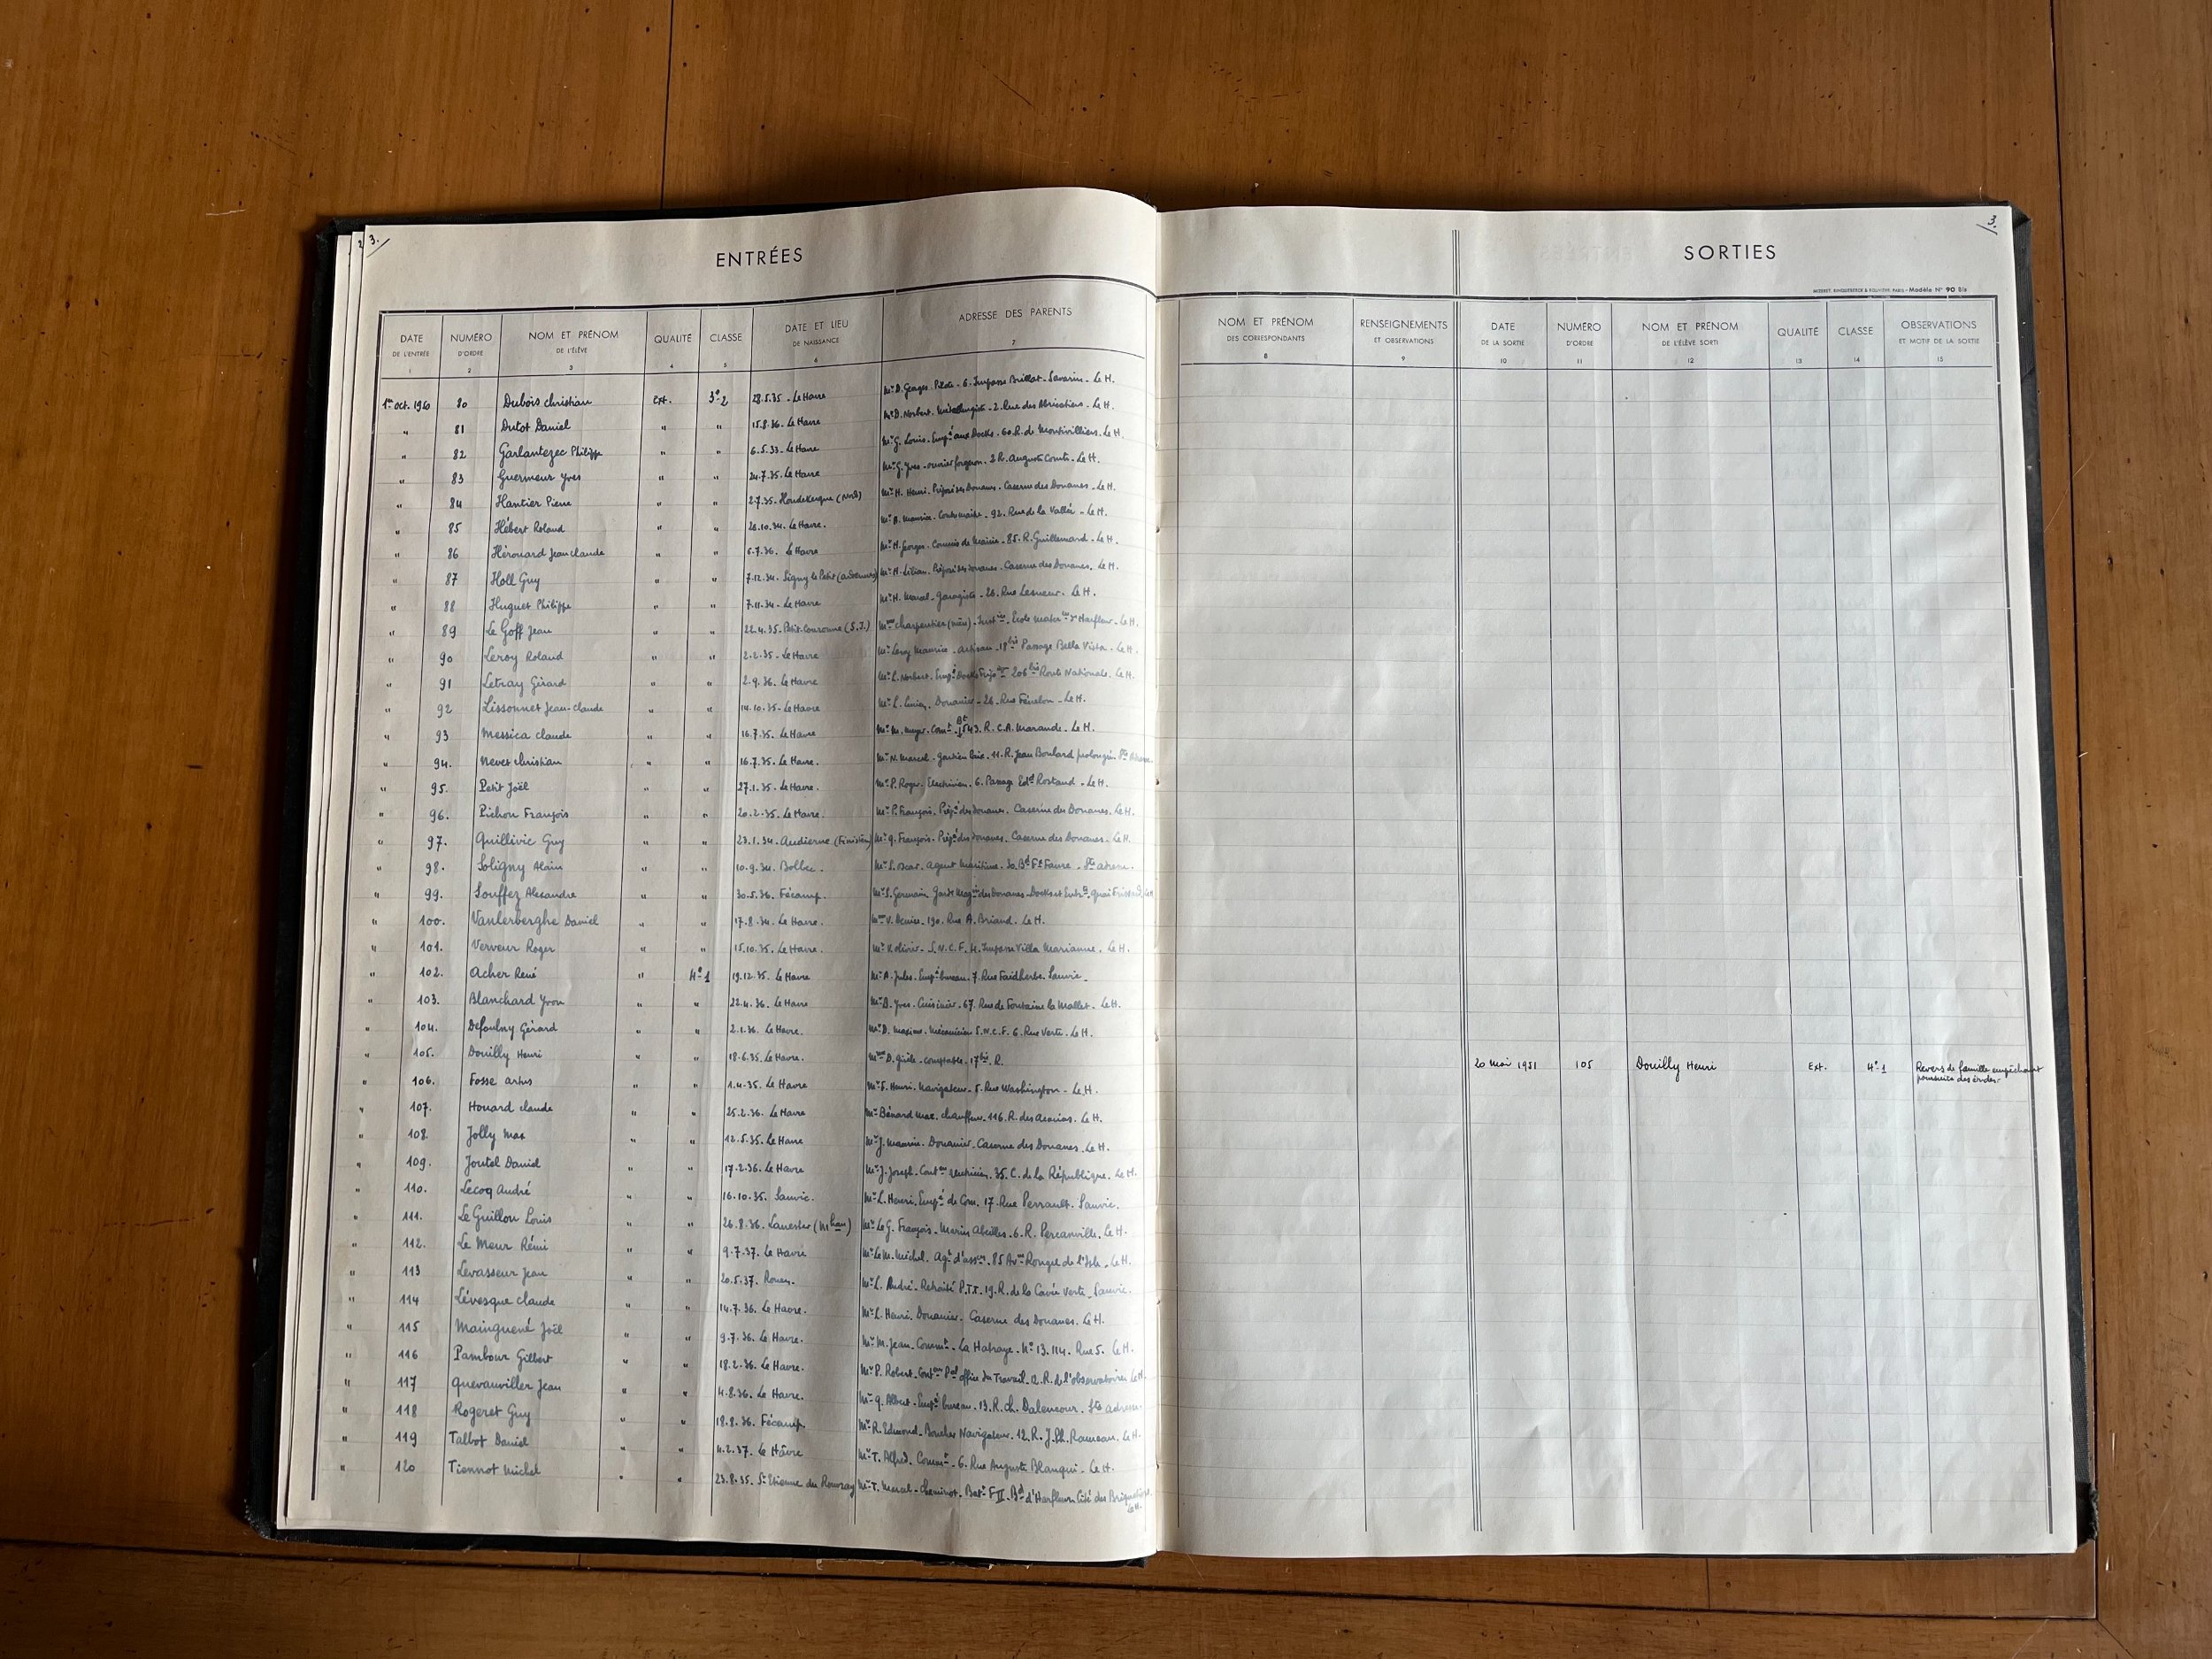 3.
ENTRÉES
DATE DE L'ENTRÉE 1 NUMÉRO D'ORDRE 2 NOM ET PRÉNOM DE L'ÉLÈVE 3 QUALITÉ 4 CLASSE 5 DATE ET LIEU DE NAISSANCE 6 ADRESSE DES PARENTS 7
80 Dubois Christian Ext. 3e 2 28.5.35 - Le Havre Mr D. Georges - Pilote - 6. Impasse Brillat-Savarin - Le H.
" 81 Dutot Daniel " " 15.8.36. Le Havre Mr D. Norbert - 2. Rue des Abricotiers - Le H.
" 82 Garlantezec Philippe " " 6.5.33. Le Havre Mr G. Louis - Empé aux Docks - 60. R. de Montivilliers. Le H.
" 83 Guermeur Yves " " 24.7.35. Le Havre Mr G. Yves - ouvrier forgeron - 2 R. Auguste Comte - Le H.
" 84 Hantier Pierre " " 2.7.35. (Nord) Mr H. Henri. Préposé des Douanes - Caserne des Douanes - Le H.
" 85 Hébert Roland " " 28.10.34. Le Havre. Maurice - Contremaître - 92. Rue de la Vallée - Le H.
" 86 Hérouard Jean Claude " " 6.7.36. Le Havre Mr H. Georges - Commis de Mairie - 85. R. Guillemard - Le H.
" 87 Holl Guy " " 7.12.34. Signy le Petit (Ardennes) Mr H. Préposé des Douanes. Caserne des Douanes. Le H.
" 88 Huguet Philippe " " 7.11.34 - Le Havre Mr H. Marcel - garagiste - 26. Rue Lesueur. Le H.
" 89 Le Goff Jean " " 22.4.35. Petit-Couronne (S.I.) Mme Charpentier (mère) - Instce Ecole Materlle Harfleur - Le H.
" 90 Leroy Roland " " 2.2.35 - Le Havre Mr Leroy Maurice - Artisan - 18bis Passage Bella Vista - Le H.
" 91 Letray Gérard " " 2.9.36. Le Havre Mr L. Norbert. Empé Docks 206bis Route Nationale. Le H.
" 92 Lissonnet Jean-Claude " " 14.10.35 - Le Havre Mr L. Douanier - 26 - Rue Fénelon - Le H.
" 93 Messica Claude " " 16.7.35. Le Havre Mr M. R. C.A. Marande - Le H.
" 94. Nevet Christian " " 16.7.35. Le Havre. Mr N. Marcel - Gardien Paix - 11. R. Jean Boulard prolongée
" 95. Petit Joël " " 27.1.35. Le Havre. Mr P. Roger. Electricien. 6. Passage Edd Rostand - Le H.
" 96. Pichon François " " 20.2.35. Le Havre. Mr P. François. Prépé des Douanes. Caserne des Douanes. Le H.
" 97. Quillivic Guy " " 23.1.34. Audierne (Finistère) Mr Q. François. Prépé des Douanes. Caserne des Douanes. Le H.
" 98. Soligny Alain " " 10.9.34. Bolbec. Mr S. Oscar. Agent Maritime. 30. Bd Fx Faure - Ste Adresse.
" 99. Souffez Alexandre " " 30.5.36. Fécamp. Mr S. Germain. Garde Magn des Douanes - Docks et Entr.
" 100. Vanlerberghe Daniel " " 17.8.34. Le Havre. Mme V. Denise. 190. Rue A. Briand. Le H.
" 101. Verveur Roger " " 15.10.35. Le Havre. Mr V. Olivier. S.N.C.F. 4. Impasse Villa Marianne. Le H.
" 102. Acher René " 4e 1 19.12.35. Le Havre Mr A. Jules. Empé bureau. 7. Rue Faidherbe. Sanvic.
" 103. Blanchard Yvon " " 22.4.36. Le Havre Mr B. Yves. Cuisinier. 67. Rue de Fontaine la Mallet. Le H.
" 104. Defoulny Gérard " " 2.1.36. Le Havre. Mr D. Maxime. Mécanicien S.N.C.F. 6. Rue Verte. Le H.
" 105. Douilly Henri " " 18.6.35. Le Havre. Mme D. Gisèle - comptable. 17bis. R.
" 106. Fosse Artus " " 1.4.35. Le Havre Mr F. Henri. Navigateur. 5. Rue Washington - Le H.
" 107. Houard Claude " " 25.2.36. Le Havre Mr Bénard Max. chauffeur. 116. R. des Acacias. Le H.
" 108. Jolly Max " " 12.5.35. Le Havre Mr J. Maurice. Douanier. Caserne des Douanes. Le H.
" 109. Joutel Daniel " " 17.2.36. Le Havre Mr J. Joseph. électricien. 35. C. de la République. Le H.
" 110. Lecoq André " " 16.10.35. Sanvic. Mr L. Henri. Empé de Com. 17. Rue Perrault. Sanvic.
" 111. Le Guillou Louis " " 26.8.36. Lanester (Mban) Mr Le G. François. Marin Abeilles. 6. R. Percanville. Le H.
" 112. Le Meur Rémi " " 9.7.37. Le Havre Mr Le M. Michel. Agt d'assces. 85 Avue Rouget de l'Isle. Le H.
" 113 Levasseur Jean " " 20.5.37. Rouen. Mr L. André. Retraité P.T.T. 19. R. de la Cavée Verte. Sanvic.
" 114 Lévesque Claude " " 14.7.36. Le Havre. Mr L. Henri. Douanier. Caserne des Douanes. Le H.
" 115 Mainguené Joël " " 9.7.36. Le Havre. Mr M. Jean. Commt. La Hatraye. No 13.114. Rue 5. Le H.
" 116 Pambour Gilbert " " 18.2.36. Le Havre. Mr P. Robert. Office du Travail. R. de l'observatoire. Le H.
" 117 Quevauviller Jean " " 4.8.36. Le Havre. Mr Q. Albert. Empé bureau. 13. R. Ch. Dalencour. Ste Adresse.
" 118 Rogeret Guy " " 18.8.36. Fécamp. Mr R. Edmond. Boucher Navigateur. 12. R. J. Ph. Rameau. Le H.
" 119 Talbot Daniel " " 4.2.37. Le Hâvre Mr T. Alfred. Commt. 6. Rue Auguste Blanqui. Le H.
" 120 Tiennot Michel " " 23.8.35. St Etienne du Rouvray Mr T. Marcel. Cheminot. Batt F II. Bd d'Harfleur. Cité des
Le H.
3.
SORTIES
Modèle No 90 Bis
NOM ET PRÉNOM DES CORRESPONDANTS 8 RENSEIGNEMENTS ET OBSERVATIONS 9 DATE DE LA SORTIE 10 NUMÉRO D'ORDRE 11 NOM ET PRÉNOM DE L'ÉLÈVE SORTI 12 QUALITÉ 13 CLASSE 14 OBSERVATIONS ET MOTIF DE LA SORTIE 15
20 Mai 1951 105 Douilly Henri Ext. 4e 1 Revers de famille empêchant
poursuite des études.